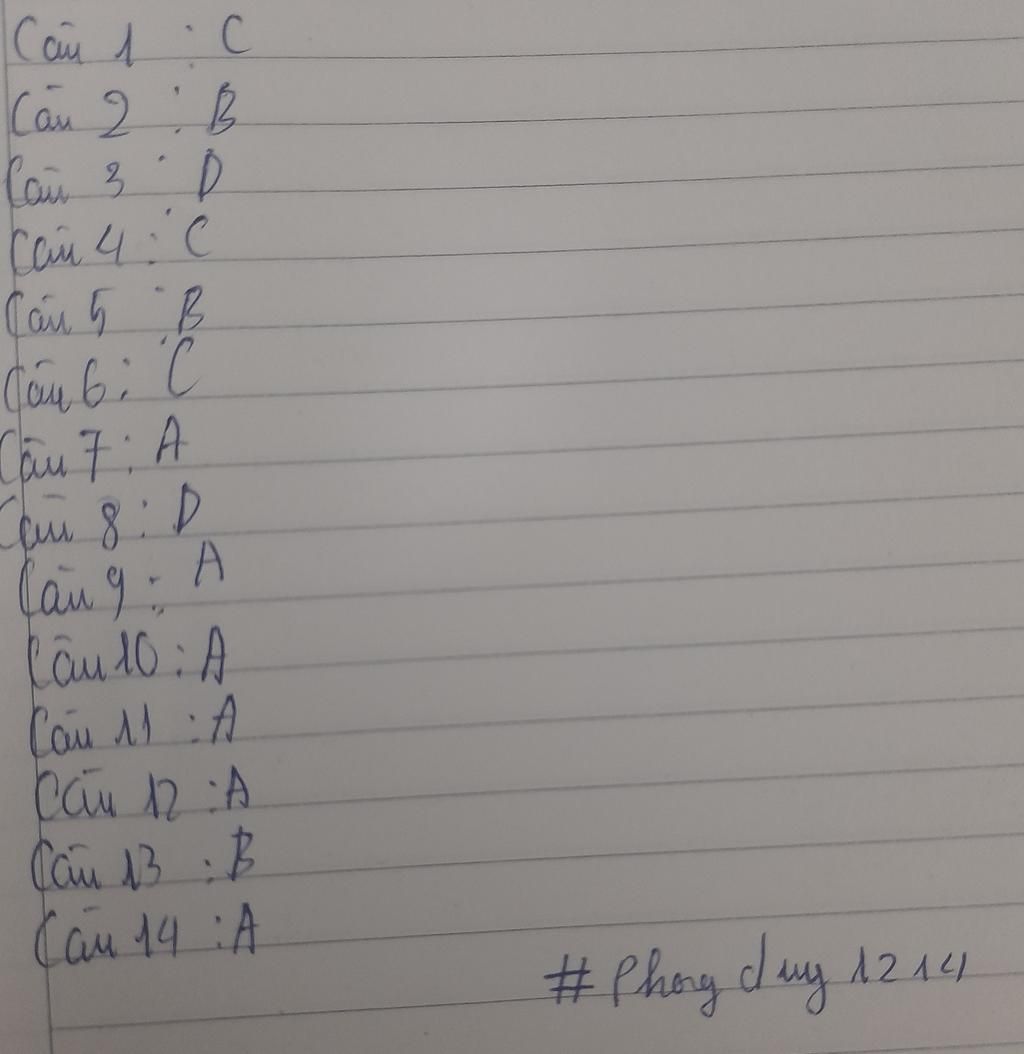 Câu 1 : C
Câu 2 : B
Câu 3 : D
Câu 4 : C
Câu 5 : B
Câu 6 : C
Câu 7 : A
Câu 8 : D
Câu 9 : A
Câu 10 : A
Câu 11 : A
Câu 12 : A
Câu 13 : B
Câu 14 : A
# Phong duy 1214